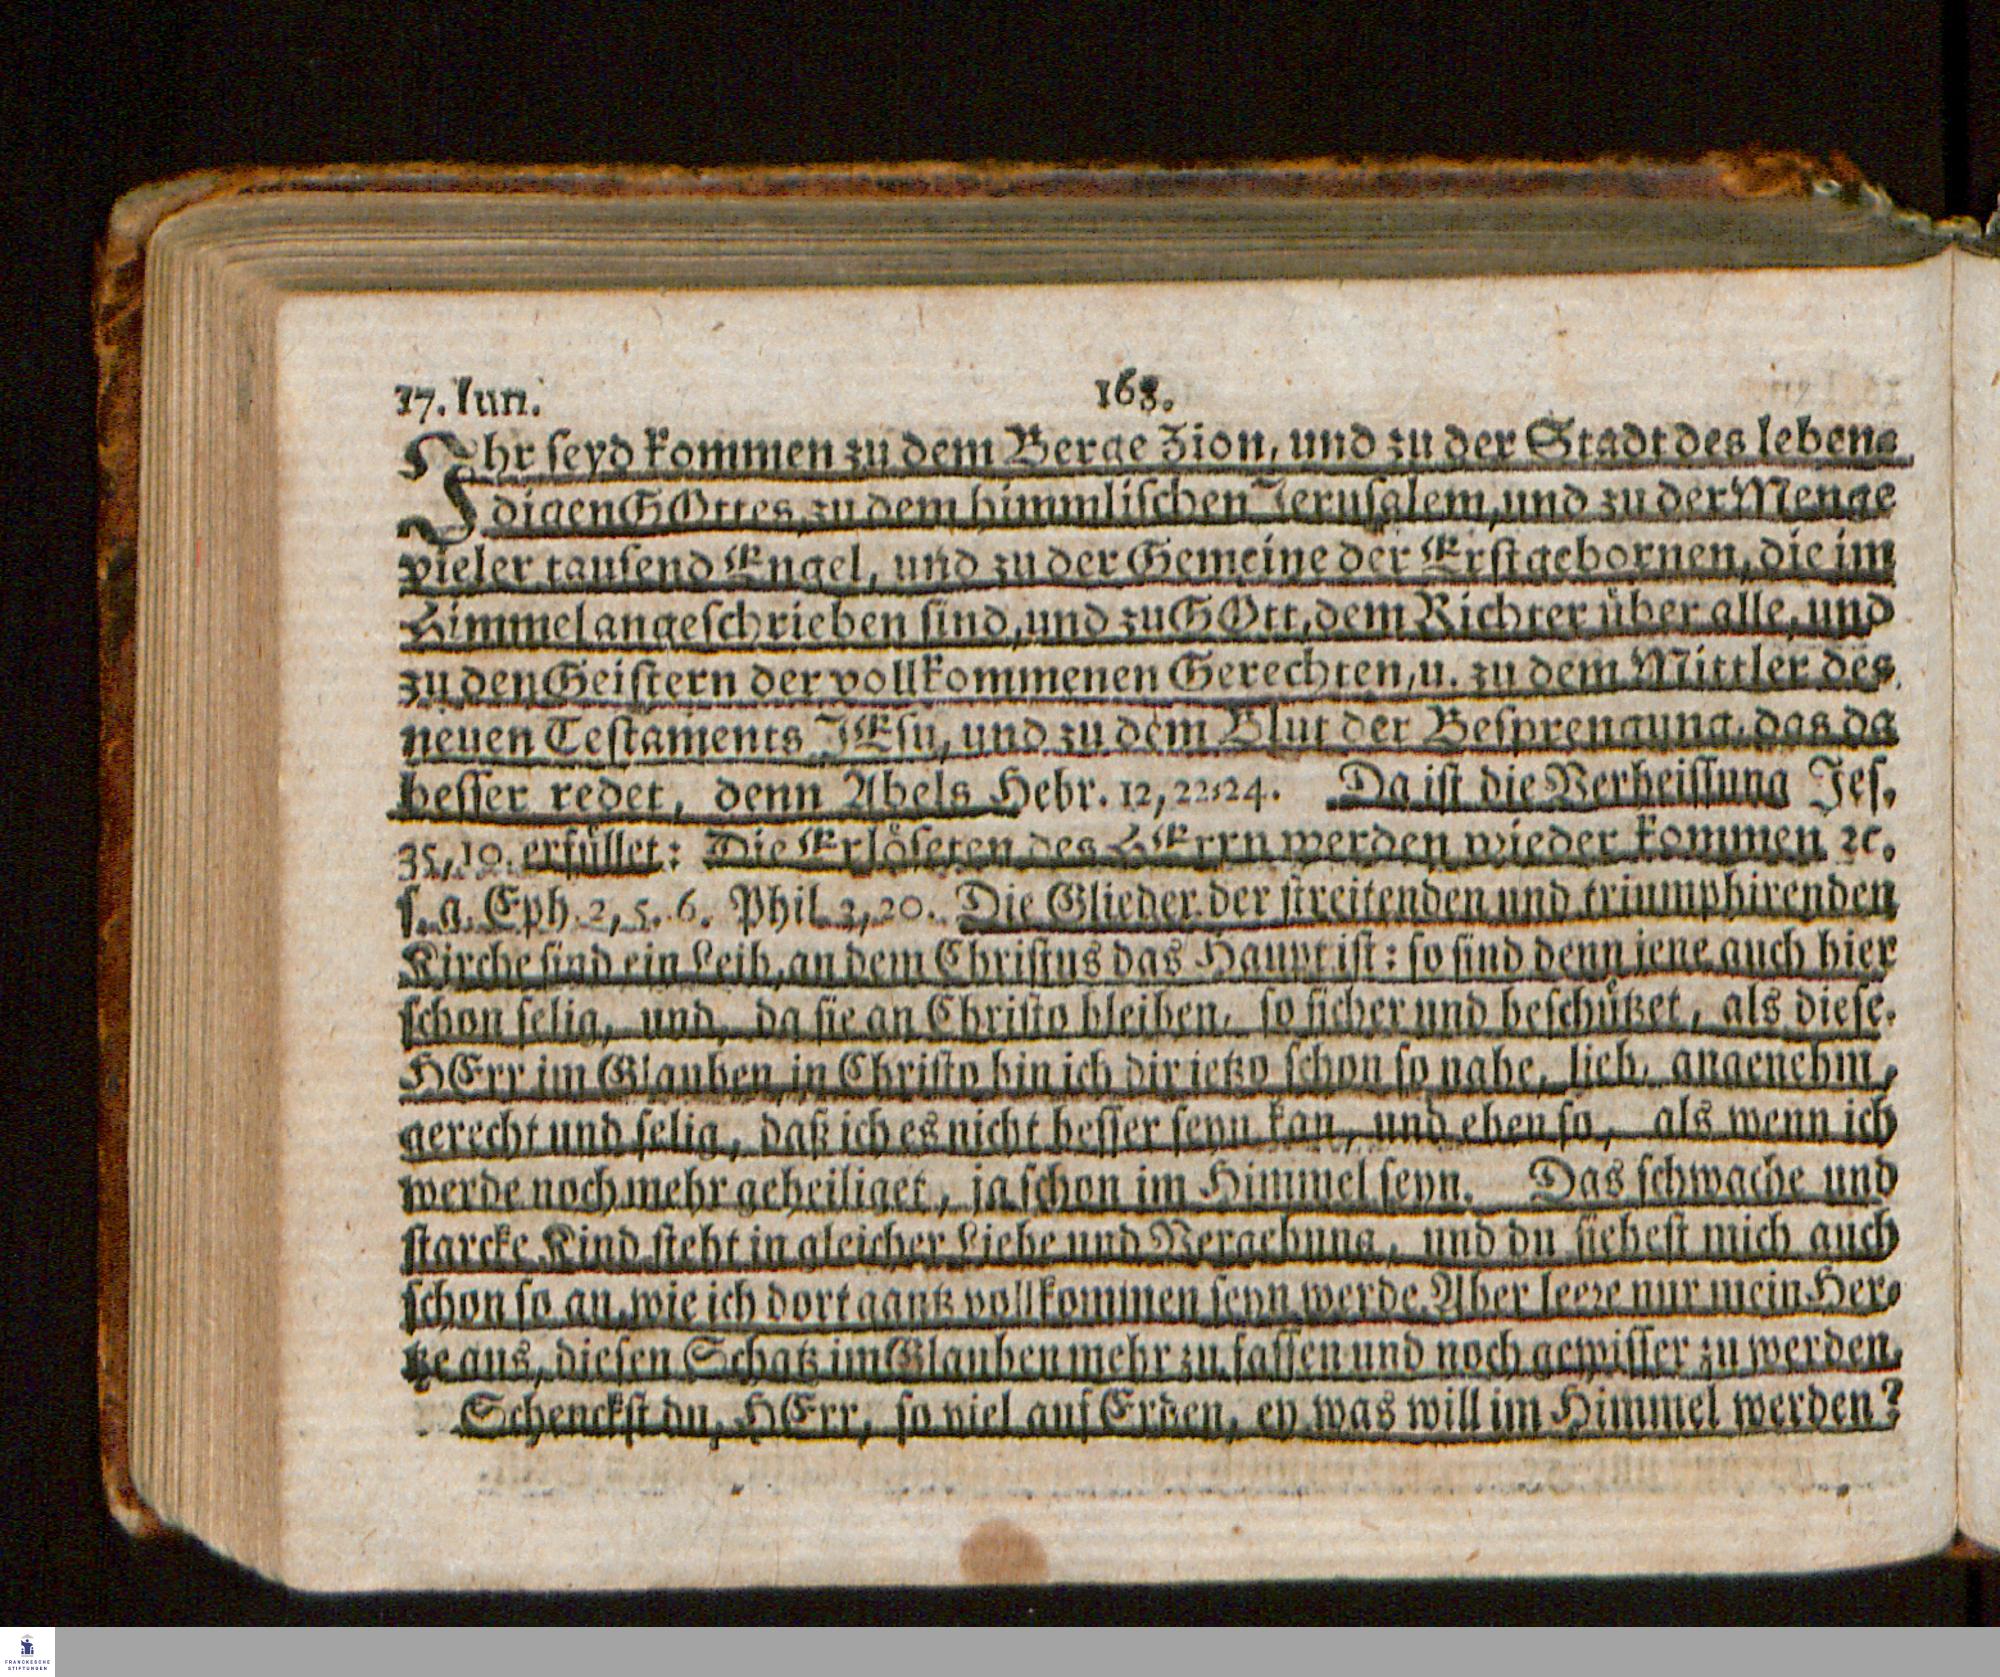 17. Iun.
168.
Ihr seyd kommen zu dem Berge Zion, und zu der Stadt des leben-
digen GOttes, zu dem himmlischen Jerusalem, und zu der Menge
vieler tausend Engel, und zu der Gemeine der Erstgebornen, die im
Himmel angeschrieben sind, und zu GOtt, dem Richter über alle, und
zu den Geistern der vollkommenen Gerechten, u. zu dem Mittler des
neuen Testaments JEsu, und zu dem Blut der Besprengung, das da
besser redet, denn Abels Hebr. 12, 22-24. Da ist die Verheissung Jes.
35, 10. erfüllet: Die Erlöseten des HErrn werden wieder kommen ꝛc.
s. a. Eph. 2, 5. 6. Phil. 3, 20. Die Glieder der streitenden und triumphirenden
Kirche sind ein Leib, an dem Christus das Haupt ist: so sind denn jene auch hier
schon selig, und, da sie an Christo bleiben, so sicher und beschützet, als diese.
HErr im Glauben in Christo bin ich dir jetzo schon so nahe, lieb, angenehm,
gerecht und selig, daß ich es nicht besser seyn kan, und eben so, als wenn ich
werde noch mehr geheiliget, ja schon im Himmel seyn. Das schwache und
starcke Kind steht in gleicher Liebe und Vergebung, und du siehest mich auch
schon so an, wie ich dort gantz vollkommen seyn werde. Aber leere nur mein Her-
tze aus, diesen Schatz im Glauben mehr zu fassen und noch gewisser zu werden.
Schenckst du, HErr, so viel auf Erden, ey was will im Himmel werden?
FRANCKESCHE
STIFTUNGEN